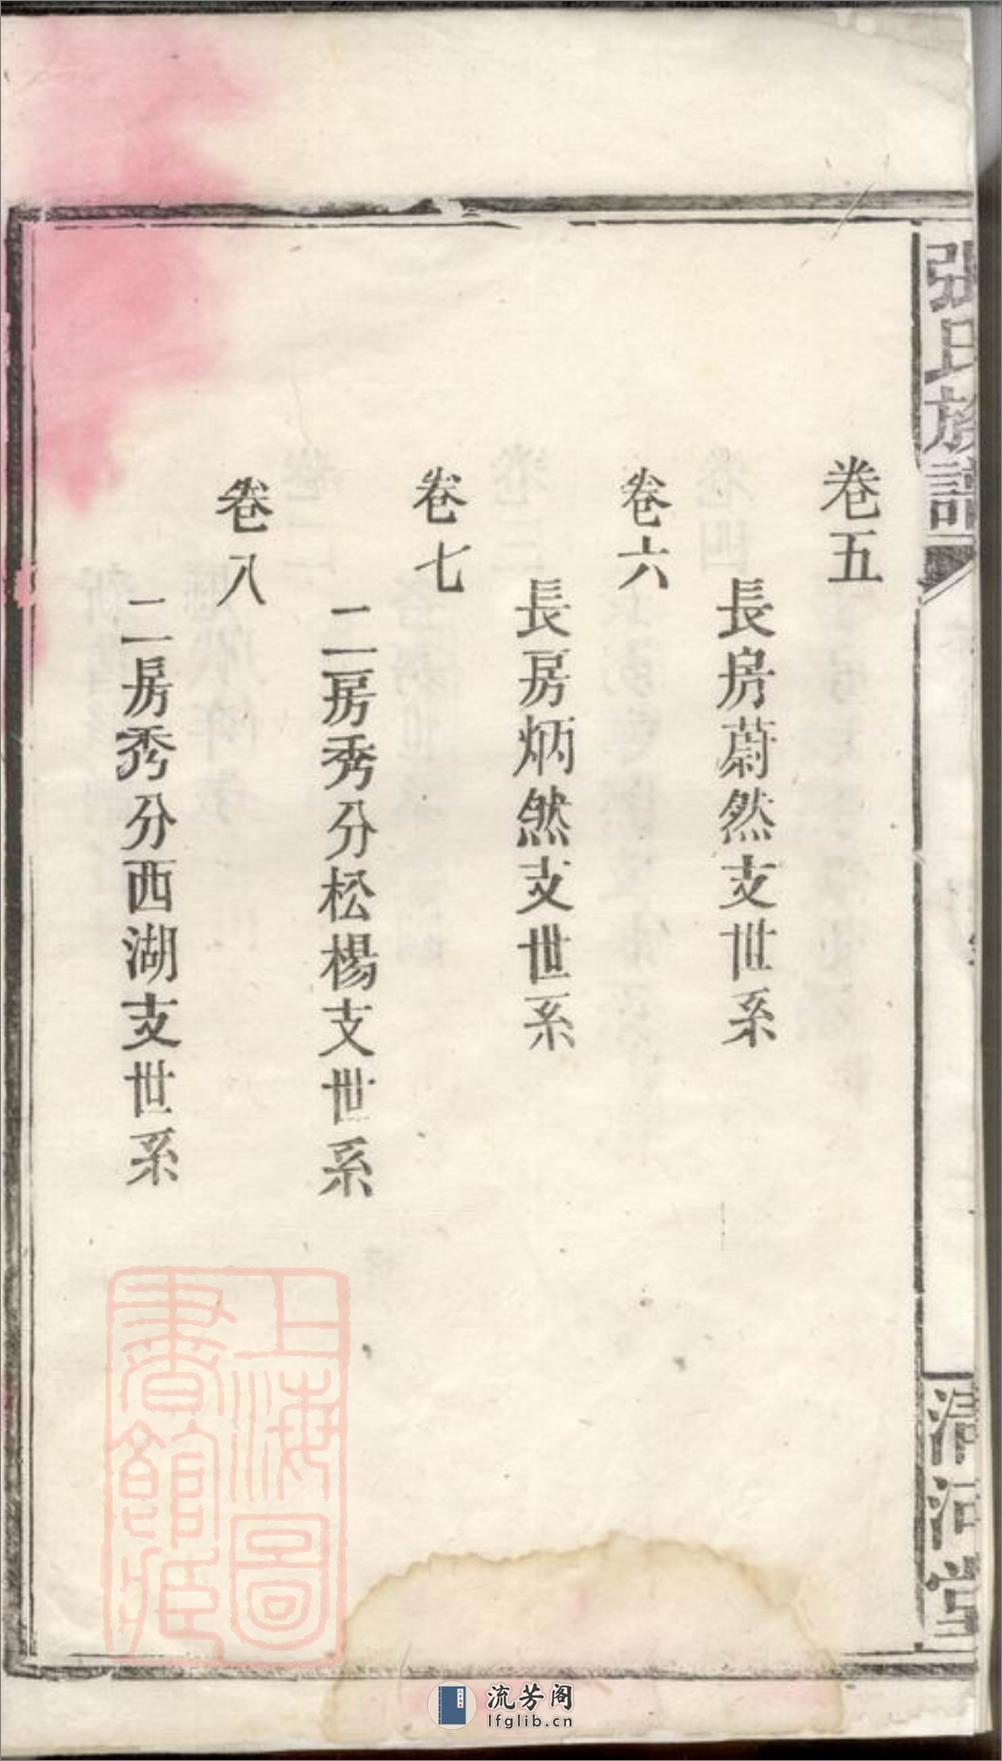 張氏族譜
清河堂
卷五
長房蔚然支世系
卷六
長房炳然支世系
卷七
二房秀分松楊支世系
卷八
二房秀分西湖支世系
上海圖
書館藏
流芳阁
lfglib.cn